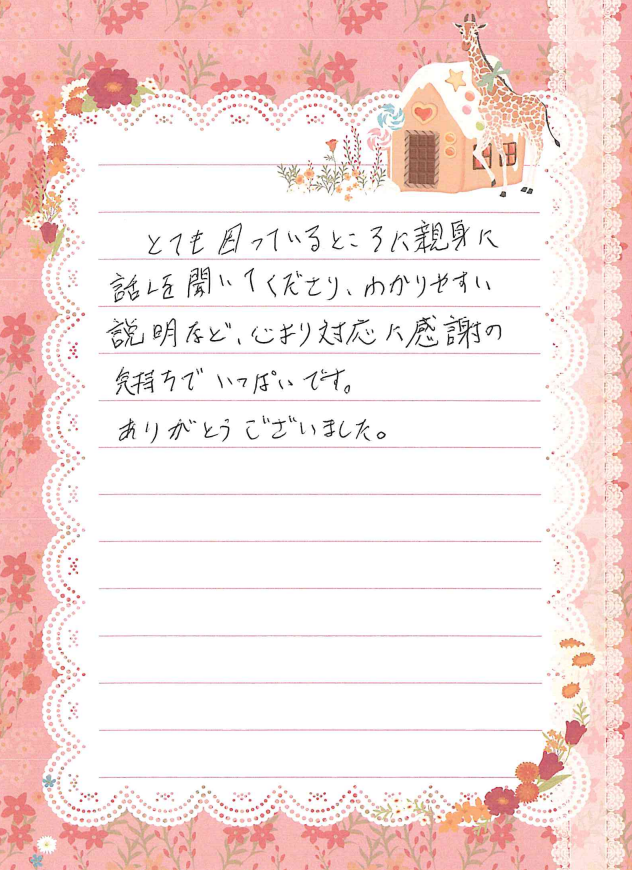 とても困っているところに親身に
話しを聞いてくださり、わかりやすい
説明など、心より対応に感謝の
気持ちでいっぱいです。
ありがとうございました。